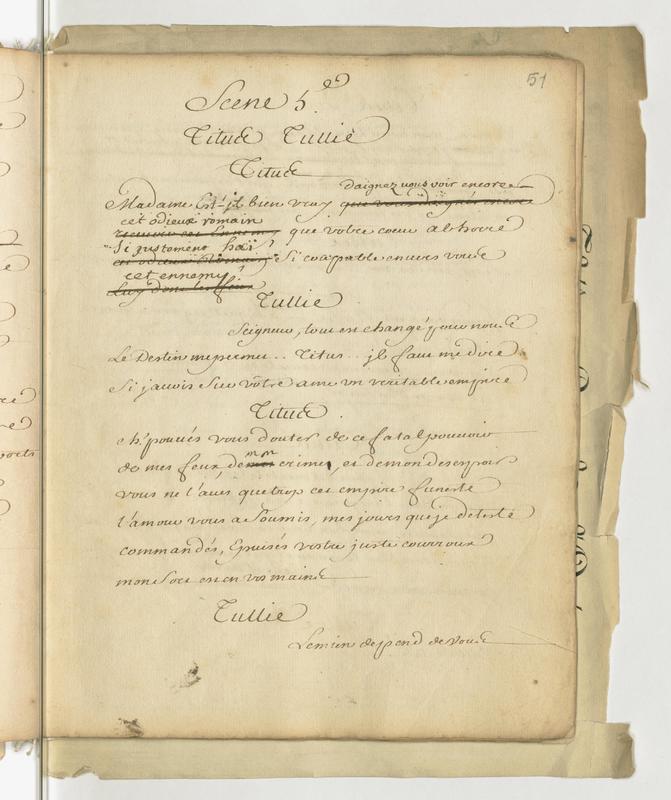 51
Scene 5.e
Titus Tullie
Titus
daignez vous voir encore
Madame Est-il bien vray que vous daignés encore
cet odieux romain
recevoir cet Ennemy que vostre coeur abhorre
Si justement haï
cet odieux Romain, Si coupable envers vous
cet ennemy?
Tullie
Seigneur, tout est changé pour nous
Le Destin me permet.. Titus.. il faut me dire
Si j'auois sur vôtre ame un veritable empire
Titus.
eh! pouvés vous douter de ce fatal pouvoir
de mes feux, de mon crime, et de mon desespoir
vous ne l'avés que trop cet empire funeste
l'amour vous a soumis, mes jours que je deteste
commandés, Epuisés vostre juste courroux
mon sort est en vos mains
Tullie
Le mien depend de vous